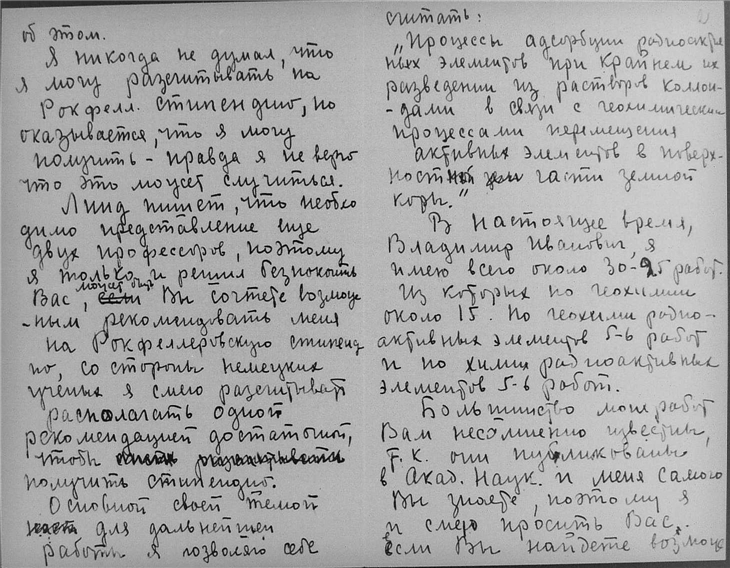 об этом.
Я никогда не думал, что
я могу разсчитывать на
Рокфелл. стипендию, но
оказывается, что я могу
получить – правда я не верю
что это может случиться.
Линд пишет, что необхо
димо представление еще
двух профессоров, поэтому
я только и решил безпокоить
Вас, может быть Вы сочтете возмож
-ным рекомендовать меня
на Рокфеллеровскую стипенд
но, со стороны немецких
ученых я смею разсчитывать
располагать одной
рекомендацией достаточной,
чтобы
получить стипендию.
Основной своей темой
для дальнейшей
работы я позволяю себе
2
считать:
„Процессы адсорбции радиоактив
ных элементов при крайнем их
разведении из растворов коллои-
-дами в связи с геохимическими
процессами перемещения
активных элементов в поверх-
ностной части земной
коры."
В настоящее время,
Владимир Иванович, я
имею всего около 30-25 работ.
Из которых по геохимии
около 15. По геохимии радио-
активных элементов 5-6 работ
и по химии радиоактивных
элементов 5-6 работ.
Большинство моих работ
Вам несомненно известны,
т.к. они публикованы
в Акад. Наук. и меня самого
Вы знаете, поэтому я
и смею просить Вас.
если Вы найдете возмож